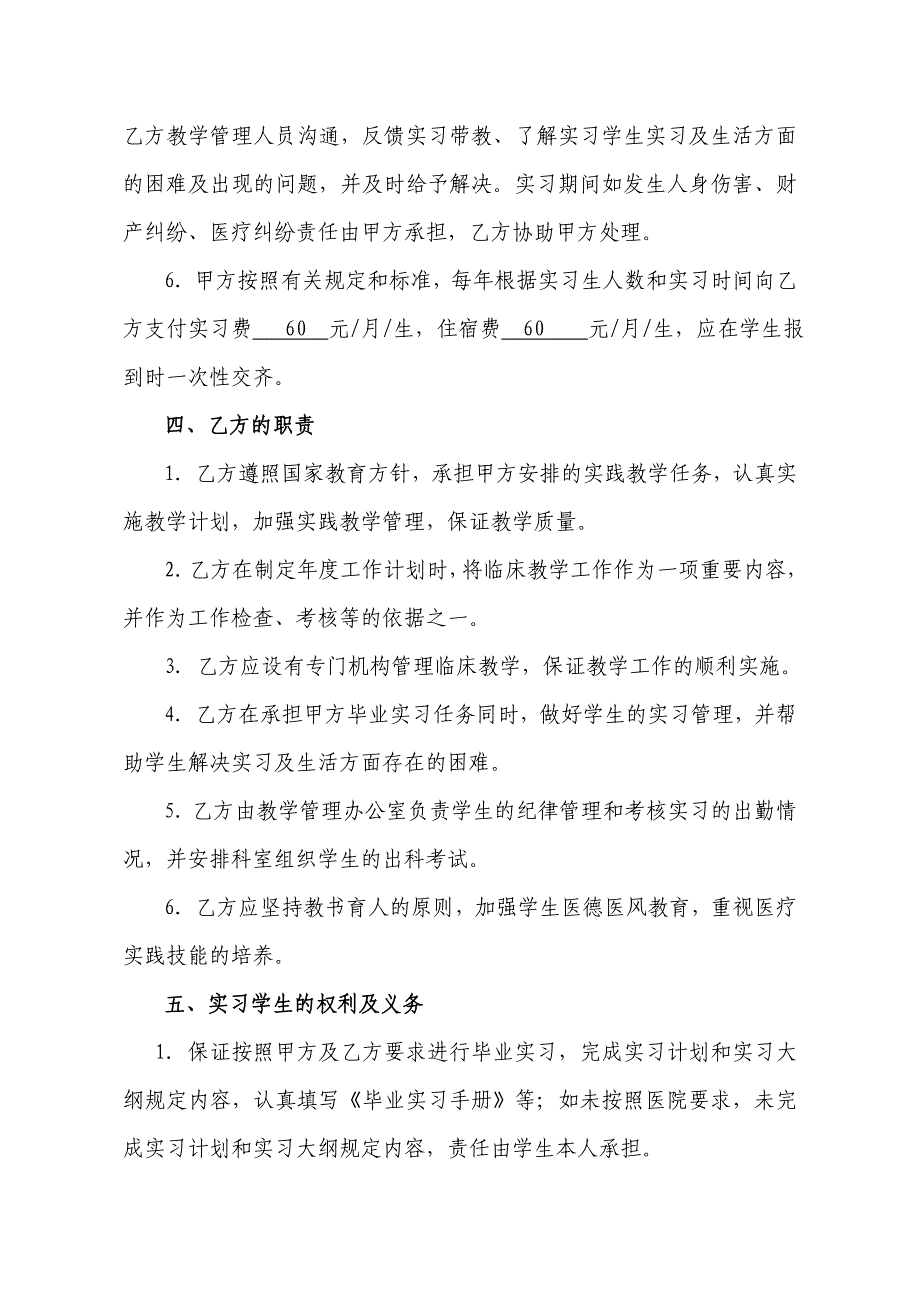 乙方教学管理人员沟通，反馈实习带教、了解实习学生实习及生活方面
的困难及出现的问题，并及时给予解决。实习期间如发生人身伤害、财
产纠纷、医疗纠纷责任由甲方承担，乙方协助甲方处理。
6．甲方按照有关规定和标准，每年根据实习生人数和实习时间向乙
方支付实习费 60 元/月/生，住宿费 60 元/月/生，应在学生报
到时一次性交齐。
四、乙方的职责
1．乙方遵照国家教育方针，承担甲方安排的实践教学任务，认真实
施教学计划，加强实践教学管理，保证教学质量。
2．乙方在制定年度工作计划时，将临床教学工作作为一项重要内容，
并作为工作检查、考核等的依据之一。
3．乙方应设有专门机构管理临床教学，保证教学工作的顺利实施。
4．乙方在承担甲方毕业实习任务同时，做好学生的实习管理，并帮
助学生解决实习及生活方面存在的困难。
5．乙方由教学管理办公室负责学生的纪律管理和考核实习的出勤情
况，并安排科室组织学生的出科考试。
6．乙方应坚持教书育人的原则，加强学生医德医风教育，重视医疗
实践技能的培养。
五、实习学生的权利及义务
1．保证按照甲方及乙方要求进行毕业实习，完成实习计划和实习大
纲规定内容，认真填写《毕业实习手册》等；如未按照医院要求，未完
成实习计划和实习大纲规定内容，责任由学生本人承担。